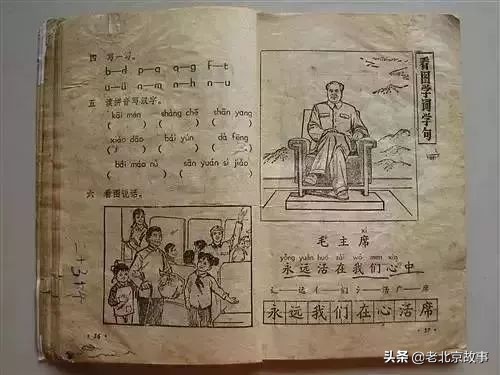 四 写一写。
b—d p—q g—g f—t
u—ü n—m a—e n—u
五 读拼音写汉字。
kāi mén shàng chē shān yang
( ) ( ) ( )
xiǎo dāo bái yún dà fēng
( ) ( ) ( )
bái máo nǚ sān yuán sì jiǎo
( ) ( )
六 看图说话。
· 36 ·
看图学词学句
xí
毛主席
yǒng yuǎn huó zài wǒ men xīn
永远活在我们心中
永远我们在心活席
· 37 ·
头条 @老北京故事